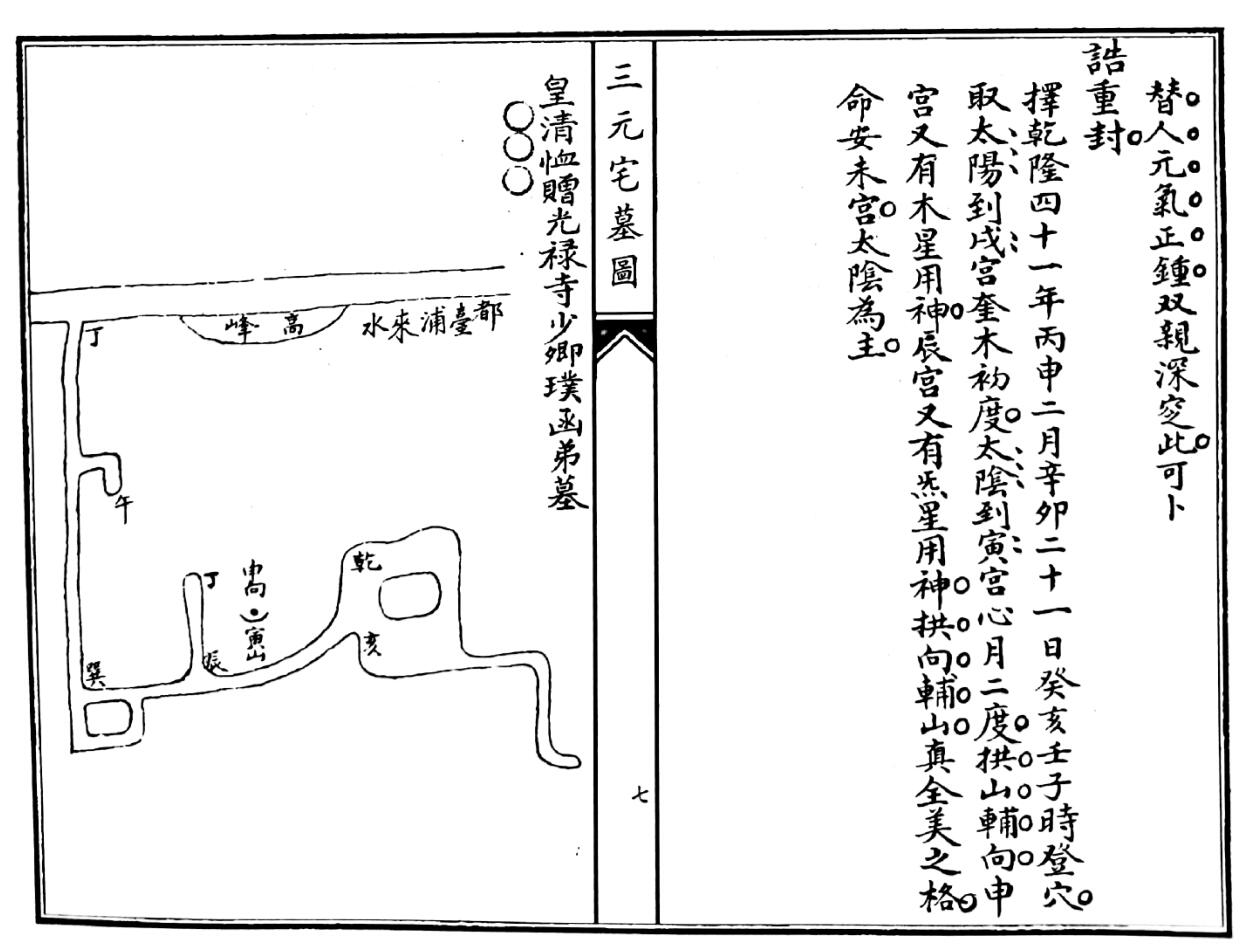 替人元氣正鍾双親深窆此可卜
誥重封
擇乾隆四十一年丙申二月辛卯二十一日癸亥壬子時登穴
取太陽到戌宮奎木初度太陰到寅宮心月二度拱山輔向申
宮又有木星用神辰宮又有炁星用神拱向輔山真全美之格
命安未宮太陰為主
三元宅墓圖
七
皇清恤贈光禄寺少卿璞函弟墓
〇〇〇
都臺浦來水
高峰
丁
午
巽
丁
辰
申向
寅山
乾
亥